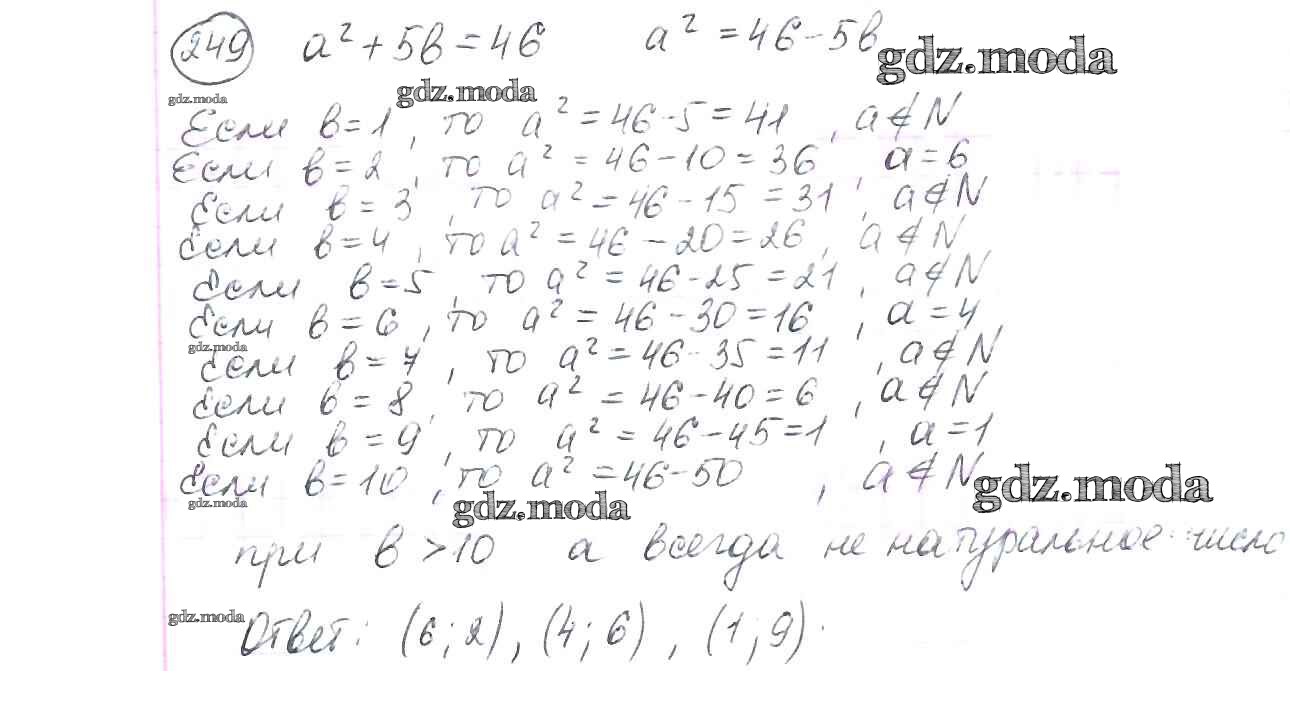 249 a² + 5в = 46 a² = 46 - 5в
gdz.moda
gdz.moda
gdz.moda
Если в = 1, то a² = 46 - 5 = 41, a ∉ N
Если в = 2, то a² = 46 - 10 = 36, a = 6
Если в = 3, то a² = 46 - 15 = 31, a ∉ N
Если в = 4, то a² = 46 - 20 = 26, a ∉ N
Если в = 5, то a² = 46 - 25 = 21, a ∉ N
Если в = 6, то a² = 46 - 30 = 16, a = 4
gdz.moda
Если в = 7, то a² = 46 - 35 = 11, a ∉ N
Если в = 8, то a² = 46 - 40 = 6, a ∉ N
Если в = 9, то a² = 46 - 45 = 1, a = 1
Если в = 10, то a² = 46 - 50, a ∉ N
gdz.moda
gdz.moda
gdz.moda
при в > 10 a всегда не натуральное число
gdz.moda
Ответ: (6; 2), (4; 6), (1; 9).